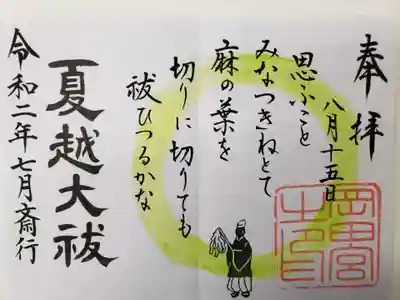 奉拝
八月十五日
思ふこと
みなつきねとて
麻の葉を
切りに切りても
祓ひつるかな
夏越大祓
令和二年七月斎行
岡田宮
之印